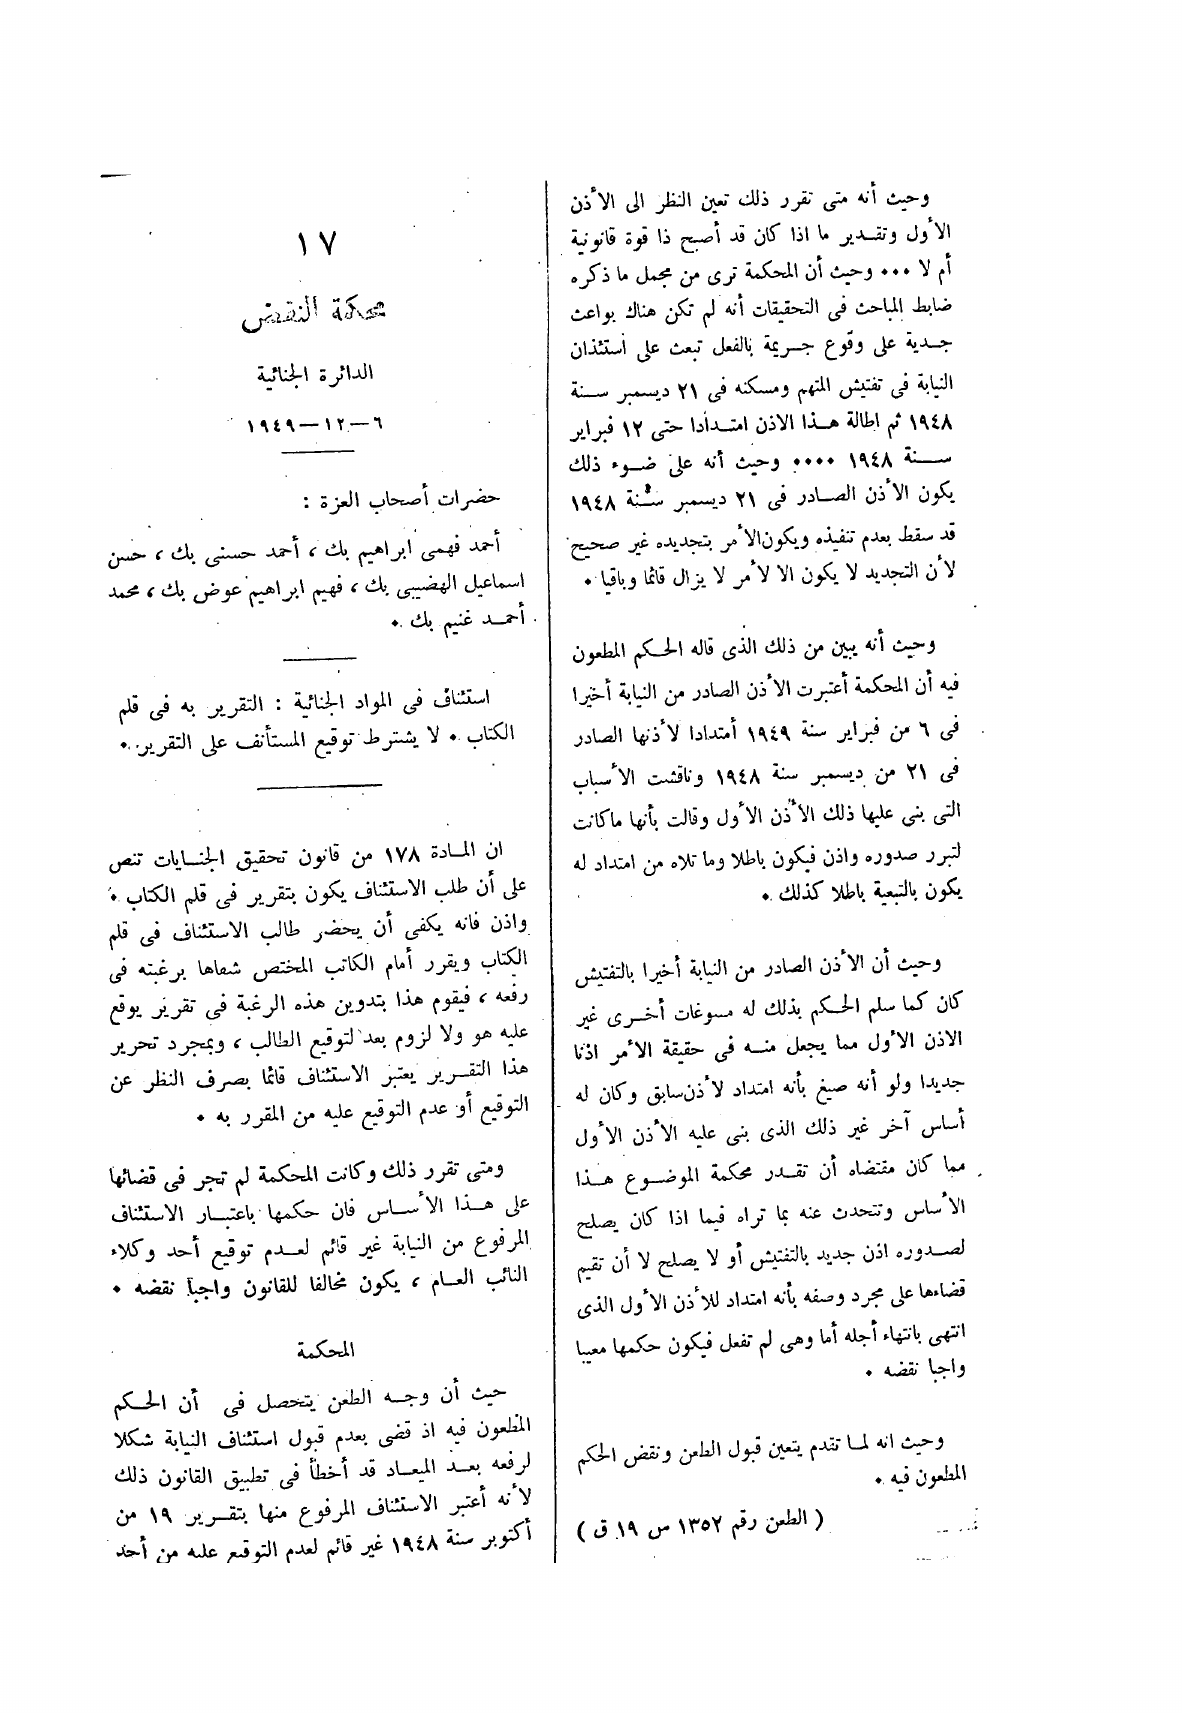 وحيث أنه متى تقرر ذلك تعين النظر الى الأذن
الأول وتقـدير ما اذا كان قد أصبح ذا قوة قانونية
أم لا ٠٠٠ وحيث أن المحكمة ترى من مجمل ما ذكره
ضابط المباحث فى التحقيقات أنه لم تكن هناك بواعث
جـدية على وقوع جـريمة بالفعل تبعث على استئذان
النيابة فى تفتيش المتهم ومسكنه فى ٢١ ديسمبر سـنة
١٩٤٨ ثم اطالة هـذا الاذن امتـدادا حتى ١٢ فبراير
سـنة ١٩٤٨ ٠٠٠٠ وحيث أنه على ضـوء ذلك
يكون الأذن الصـادر فى ٢١ ديسمبر سـنة ١٩٤٨
قد سقط بعدم تنفيذه ويكون الأمر بتجديده غير صحيح
لأن التجديد لا يكون الا لأمر لا يزال قائما وباقيا ٠
وحيث أنه يبين من ذلك الذى قاله الحـكم المطعون
فيه أن المحكمة أعتبرت الأذن الصادر من النيابة أخيرا
فى ٦ من فبراير سنة ١٩٤٩ أمتدادا لأذنها الصادر
فى ٢١ من ديسمبر سنة ١٩٤٨ وناقشت الأسباب
التى بنى عليها ذلك الأذن الأول وقالت بأنها ماكانت
لتبرر صدوره واذن فيكون باطلا وما تلاه من امتداد له
يكون بالتبعية باطلا كذلك ٠
وحيث أن الأذن الصادر من النيابة أخيرا بالتفتيش
كان كما سلم الحـكم بذلك له مسوغات أخـرى غير
الاذن الأول مما يجعل منـه فى حقيقة الأمر اذنا
جديدا ولو أنه صيغ بأنه امتداد لأذن سابق وكان له
أساس آخر غير ذلك الذى بنى عليه الأذن الأول
مما كان مقتضاه أن تقـدر محكمة الموضـوع هـذا
الأساس وتتحدث عنه بما تراه فيما اذا كان يصلح
لصـدوره اذن جديد بالتفتيش أو لا يصلح لا أن تقيم
قضاءها على مجرد وصفه بأنه امتداد للأذن الأول الذى
انتهى بانتهاء أجله أما وهى لم تفعل فيكون حكمها معيبا
واجبا نقضه ٠
وحيث انه لمـا تقدم يتعين قبول الطعن ونقض الحكم
المطعون فيه ٠
( الطعن رقم ١٣٥٢ س ١٩ ق )
١٧
محكمة النقض
الدائرة الجنائية
٦-١٢-١٩٤٩
حضرات أصحاب العزة :
أحمد فهمى ابراهيم بك ، أحمد حسنى بك ، حسن
اسماعيل الهضيبى بك ، فهيم ابراهيم عوض بك ، محمد
أحمـد غنيم بك ٠
استئناف فى المواد الجنائية : التقرير به فى قلم
الكتاب ٠ لا يشترط توقيع المستأنف على التقرير ٠
ان المـادة ١٧٨ من قانون تحقيق الجنـايات تنص
على أن طلب الاستئناف يكون بتقرير فى قلم الكتاب ٠
واذن فانه يكفى أن يحضر طالب الاستئناف فى قلم
الكتاب ويقرر أمام الكاتب المختص شفاها برغبته فى
رفعه ، فيقوم هذا بتدوين هذه الرغبة فى تقرير يوقع
عليه هو ولا لزوم بعد لتوقيع الطالب ، وبمجرد تحرير
هذا التقـرير يعتبر الاستئناف قائما بصرف النظر عن
التوقيع أو عدم التوقيع عليه من المقرر به ٠
ومتى تقرر ذلك وكانت المحكمة لم تجر فى قضائها
على هـذا الأسـاس فان حكمها باعتبـار الاستئناف
المرفوع من النيابة غير قائم لعـدم توقيع أحد وكلاء
النائب العـام ، يكون مخالفا للقانون واجبا نقضه ٠
المحكمة
حيث أن وجـه الطعن يتحصل فى أن الحـكم
المطعون فيه اذ قضى بعدم قبول استئناف النيابة شكلا
لرفعه بعـد الميعـاد قد أخطأ فى تطبيق القانون ذلك
لأنه أعتبر الاستئناف المرفوع منها بتقـرير ١٩ من
أكتوبر سنة ١٩٤٨ غير قائم لعدم التوقيع عليه من أحد